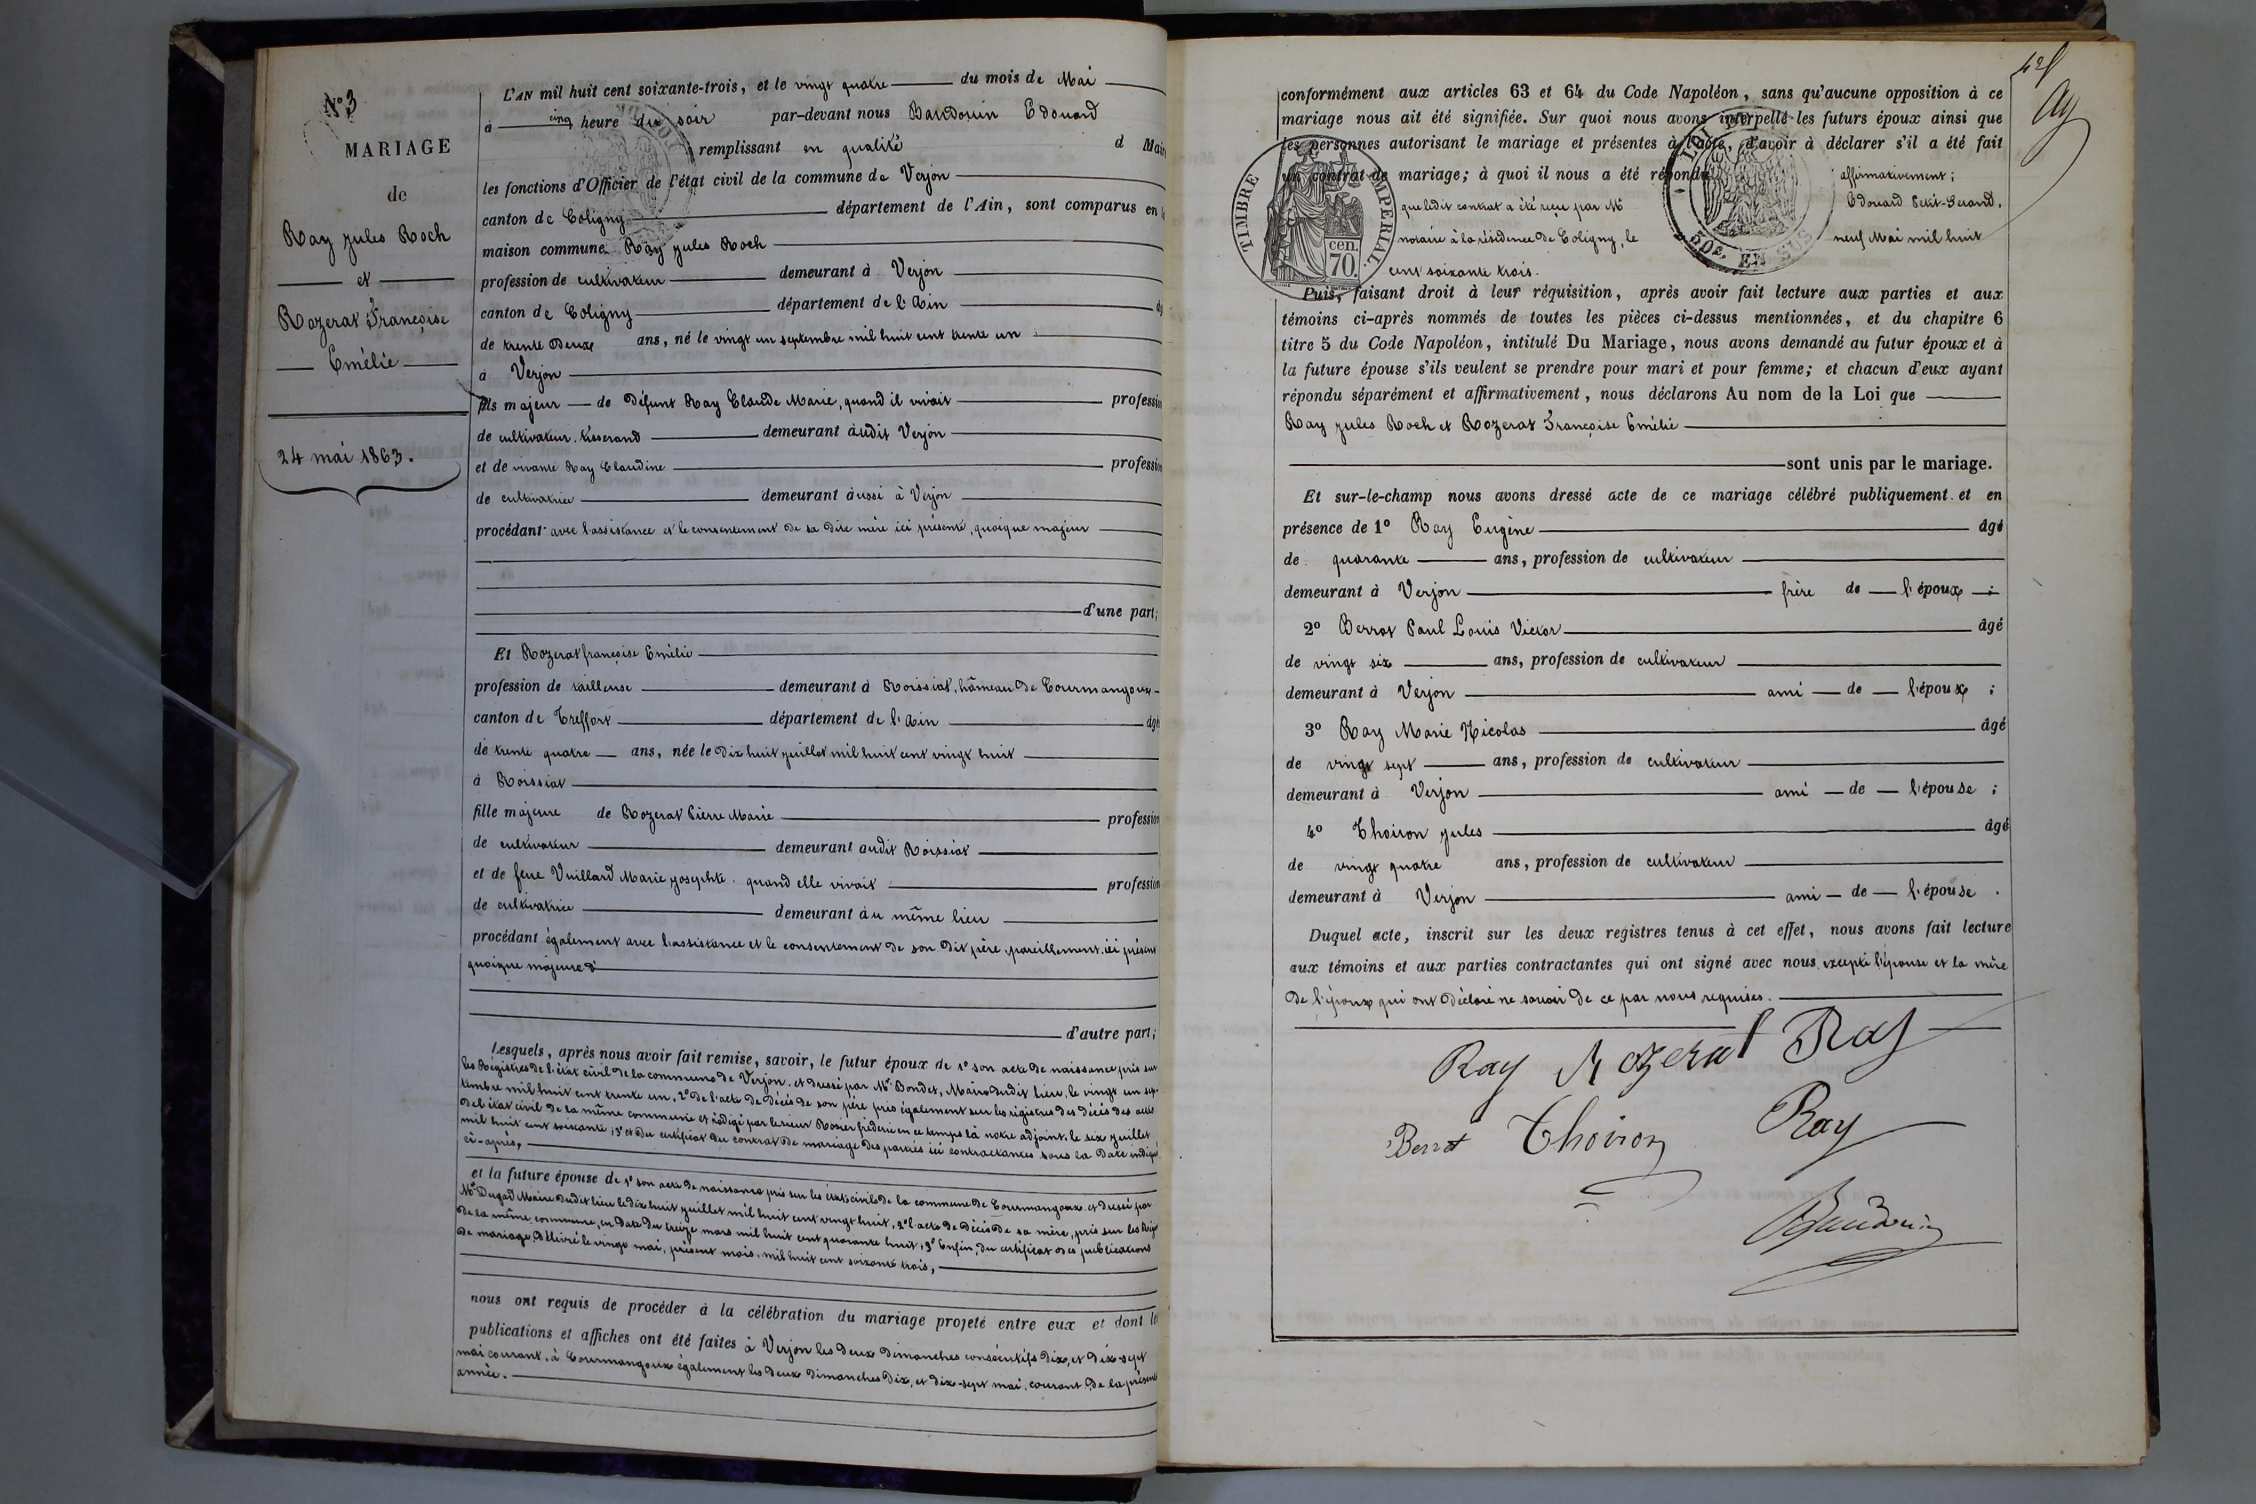 N° 3
MARIAGE
de
Ray Jules Roch
et
Rozerat Françoise
Emélie
24 mai 1863.
L'AN mil huit cent soixante-trois, et le vingt quatre du mois de Mai
à cinq heure du soir par-devant nous Baudouin Edouard
remplissant en qualité d Maire
les fonctions d'Officier de l'état civil de la commune de Verjon
canton de Coligny département de l'Ain, sont comparus en la
maison commune Ray Jules Roch
profession de cultivateur demeurant à Verjon
canton de Coligny département de l'Ain âgé
de trente deux ans, né le vingt un septembre mil huit cent trente un
à Verjon
fils majeur de défunt Ray Claude Marie, quand il vivait profession
de cultivateur tisserand demeurant audit Verjon
et de vivante Ray Claudine profession
de cultivatrice demeurant aussi à Verjon
procédant avec l'assistance et le consentement de sa dite mère ici présente, quoique majeur
d'une part;
Et Rozerat françoise Emélie
profession de tailleuse demeurant à Roissiat, hâmeau de Courmangoux
canton de Treffort département de l'Ain âgé
de trente quatre ans, née le dix huit juillet mil huit cent vingt huit
à Roissiat
fille majeure de Rozerat Pierre Marie profession
de cultivateur demeurant audit Roissiat
et de feue Vuillard Marie Josephte quand elle vivait profession
de cultivatrice demeurant au même lieu
procédant également avec l'assistance et le consentement de son dit père, pareillement ici présent
quoique majeure
d'autre part;
Lesquels, après nous avoir fait remise, savoir, le futur époux de 1° son acte de naissance pris sur
les Régistres de l'état civil de la commune de Verjon et dressé par Mr Bondet, Maire dudit lieu, le vingt un sep-
tembre mil huit cent trente un, 2° de l'acte de décès de son père pris également sur les régistres des décès des actes
de l'état civil de la même commune et rédigé par le sieur Rosier fréderic en ce temps là notre adjoint, le six juillet
mil huit cent soixante, 3° et du certificat du contrat de mariage des parties ici contractantes sous la date indiquée
ci-après,
et la future épouse de 1° son acte de naissance pris sur les états civils de la commune de Courmangoux et dressé par
Mr Dugad Maire dudit lieu le dix huit juillet mil huit cent vingt huit, 2° l'acte de décès de sa mère, pris sur les Régis
de la même commune, en date du treize mars mil huit cent quarante huit, 3° Enfin, du certificat des publications
de mariage, délivré le vingt mai, présent mois, mil huit cent soixante trois,
nous ont requis de procéder à la célébration du mariage projeté entre eux et dont les
publications et affiches ont été faites à Verjon les deux dimanches consécutifs dix, et dix-sept
mai courant, à Courmangoux également les deux dimanches dix, et dix-sept mai, courant de la présente
année.
Ay
conformément aux articles 63 et 64 du Code Napoléon, sans qu'aucune opposition à ce
mariage nous ait été signifiée. Sur quoi nous avons interpellé les futurs époux ainsi que
les personnes autorisant le mariage et présentes à l'acte, d'avoir à déclarer s'il a été fait
un contrat de mariage; à quoi il nous a été répondu affirmativement;
que ledit contrat a été reçu par Me Edouard Petit-Gerand,
notaire à la résidence de Coligny, le neuf Mai mil huit
cent soixante trois.
TIMBRE IMPERIAL
cen.
70.
LOI DE
50c. EN SUS
Puis, faisant droit à leur réquisition, après avoir fait lecture aux parties et aux
témoins ci-après nommés de toutes les pièces ci-dessus mentionnées, et du chapitre 6
titre 5 du Code Napoléon, intitulé Du Mariage, nous avons demandé au futur époux et à
la future épouse s'ils veulent se prendre pour mari et pour femme; et chacun d'eux ayant
répondu séparément et affirmativement, nous déclarons Au nom de la Loi que
Ray Jules Roch et Rozerat Françoise Emélie
sont unis par le mariage.
Et sur-le-champ nous avons dressé acte de ce mariage célébré publiquement et en
présence de 1° Ray Eugène âgé
de quarante ans, profession de cultivateur
demeurant à Verjon frère de l'époux ;
2° Berrot Paul Louis Victor âgé
de vingt six ans, profession de cultivateur
demeurant à Verjon ami de l'époux ;
3° Ray Marie Nicolas âgé
de vingt sept ans, profession de cultivateur
demeurant à Verjon ami de l'épouse ;
4° Thoiron Jules âgé
de vingt quatre ans, profession de cultivateur
demeurant à Verjon ami de l'épouse .
Duquel acte, inscrit sur les deux registres tenus à cet effet, nous avons fait lecture
aux témoins et aux parties contractantes qui ont signé avec nous, excepté l'épouse et la mère
de l'époux qui ont déclaré ne savoir de ce par nous requises.
Ray Rozerat Ray
Berrot Thoiron Ray
Baudouin